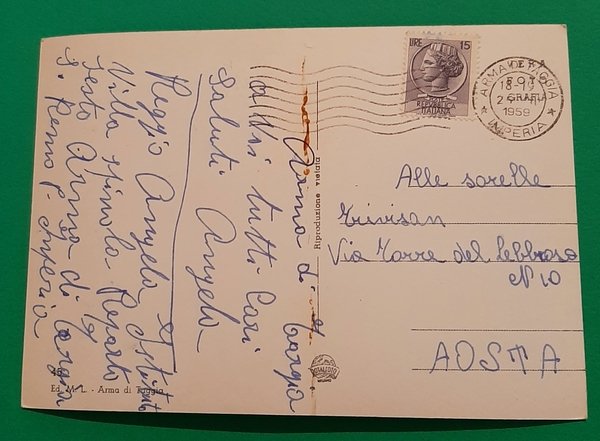 Arma di Taggia
Altri tutti Cari
Saluti Angela
Reggio Angela Istituto
Villa Spinola Reparto
Sesto Arma di Taggia
S. Remo P. Imperia
Riproduzione vietata
Ed. M. L. - Arma di Taggia
LIRE 15
REPUBBLICA
ITALIANA
ARMA DI TAGGIA
18-19
1959
* IMPERIA *
Alle sorelle
Trivisan
Via Torre del Lebbroso
N 10
AOSTA